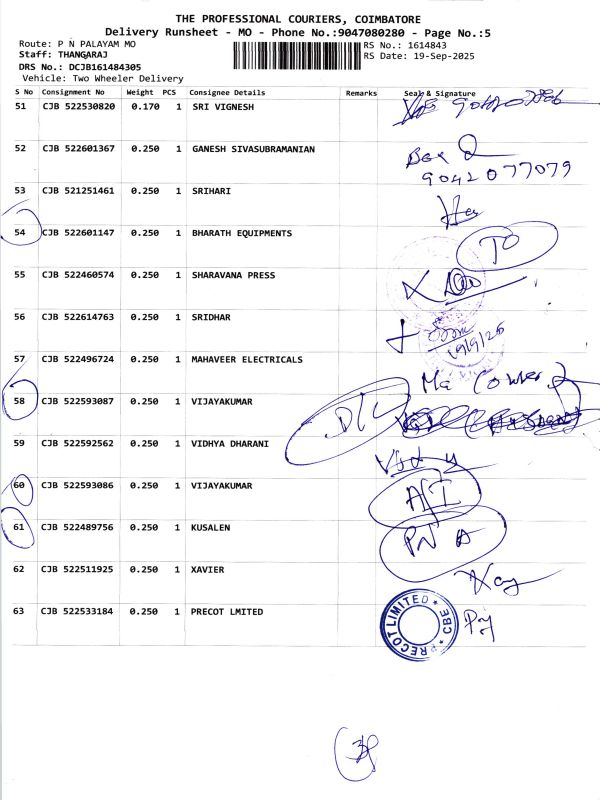 THE PROFESSIONAL COURIERS, COIMBATORE
Delivery Runsheet - MO - Phone No.:9047080280 - Page No.:5
Route: P N PALAYAM MO
RS No.: 1614843
Staff: THANGARAJ
RS Date: 19-Sep-2025
DRS No.: DCJB161484305
Vehicle: Two Wheeler Delivery
S No Consignment No Weight PCS Consignee Details Remarks Seal & Signature
51 CJB 522530820 0.170 1 SRI VIGNESH
52 CJB 522601367 0.250 1 GANESH SIVASUBRAMANIAN
9042077079
53 CJB 521251461 0.250 1 SRIHARI
54 CJB 522601147 0.250 1 BHARATH EQUIPMENTS
55 CJB 522460574 0.250 1 SHARAVANA PRESS
56 CJB 522614763 0.250 1 SRIDHAR
19/9/25
57 CJB 522496724 0.250 1 MAHAVEER ELECTRICALS
58 CJB 522593087 0.250 1 VIJAYAKUMAR
D/L
59 CJB 522592562 0.250 1 VIDHYA DHARANI
60 CJB 522593086 0.250 1 VIJAYAKUMAR
61 CJB 522489756 0.250 1 KUSALEN
PN A
62 CJB 522511925 0.250 1 XAVIER
63 CJB 522533184 0.250 1 PRECOT LMITED
PRECOT LIMITED * CBE *